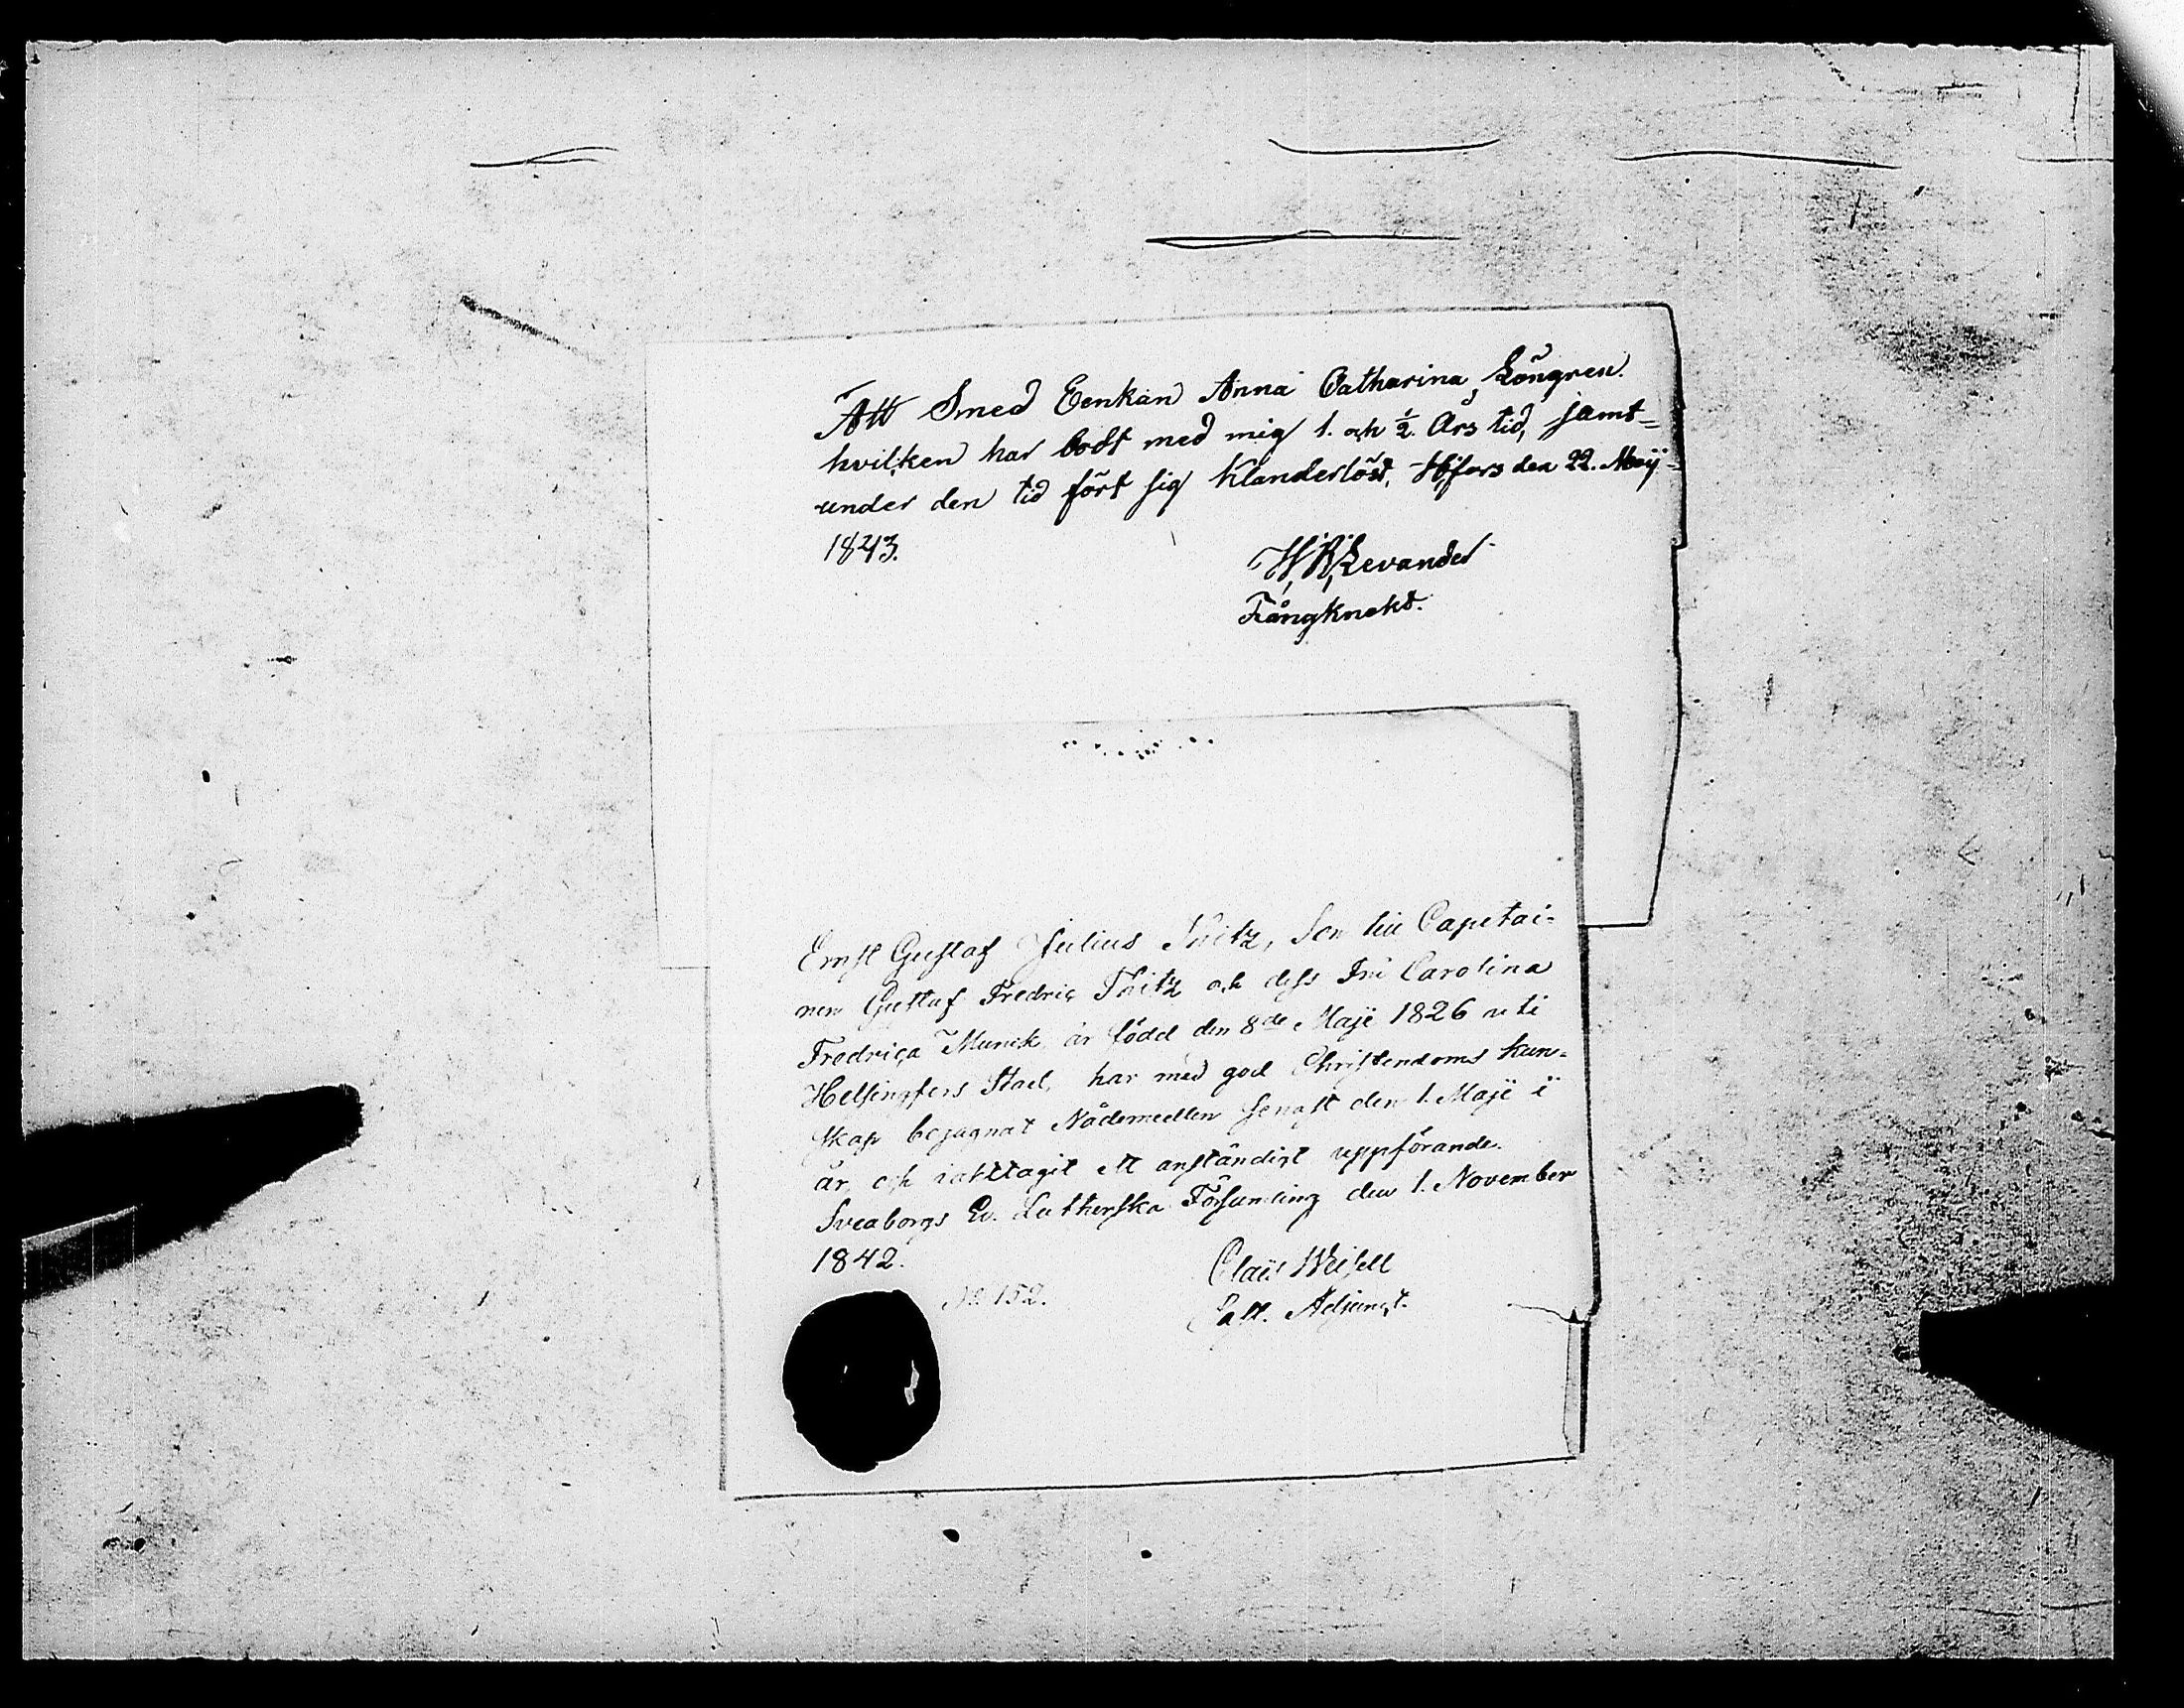 Att Smed Eenkan Anna Catharina Löngren.
hvilken har bodt med mig 1. och ½. Års tid, jämt=
under den tid fört sig Klanderlöst, Hfors den 22. Maÿ
1843.
W, R, Levander
Fångknekt.
Ernst Gustaf Julius, Son till Capetai-
nen Gustaf Fredric och dess Fru Carolina
Fredrica Munck är född den 8de Maji 1826 uti
Helsingfors Stad, har med god Christendoms kun-
skap begagnat Nådemedlen senast den 1. Maji i
år och iakttagit ett anständigt uppförande.
Sveaborgs Ev. Lutherska Församling den 1. November
1842.
Claës Weisell
No 152.
Past. Adjunct.